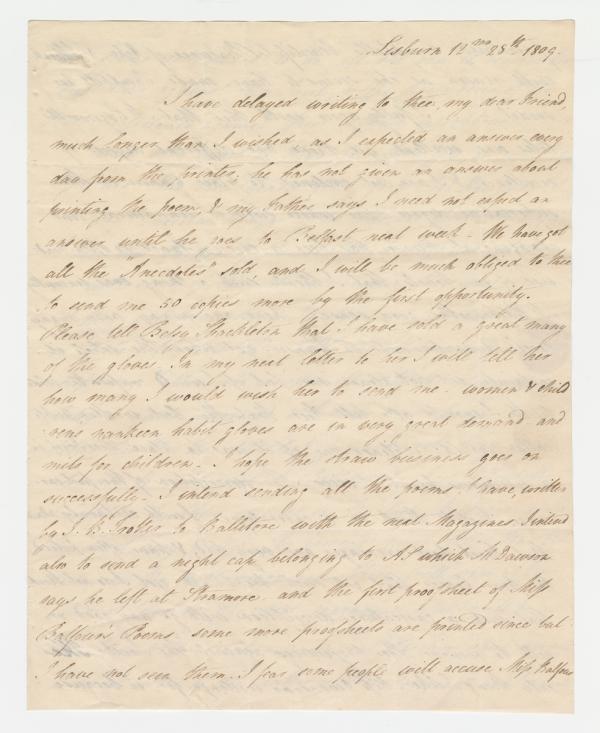 Lisburn 12mo 28th 1809.
I have delayed writing to thee, my dear Friend,
much longer than I wished, as I expected an answer every
day from the printer; he has not given an answer about
printing the poem, & my Father says I need not expect an
answer until he goes to Belfast next week - We have got
all the "Anecdotes" sold, and I will be much obliged to thee
to send me 50 copies more by the first opportunity.
Please tell Betsy Shackleton that I have sold a great many
of the gloves. In my next letter to her I will tell her
how many I would wish her to send me - women & child
rens nankeen habit gloves are in very great demand and
mits for children. I hope the straw business goes on
successfully. I intend sending all the poems I have, written
by J. B. Trotter to Ballitore with the next Magazines. I intend
also to send a night cap belonging to AS which M Dawson
says he left at Stramore and the first proofsheet of Miss
Balfour's Poems some more proofsheets are printed since but
I have not seen them. I fear some people will accuse Miss Balfour